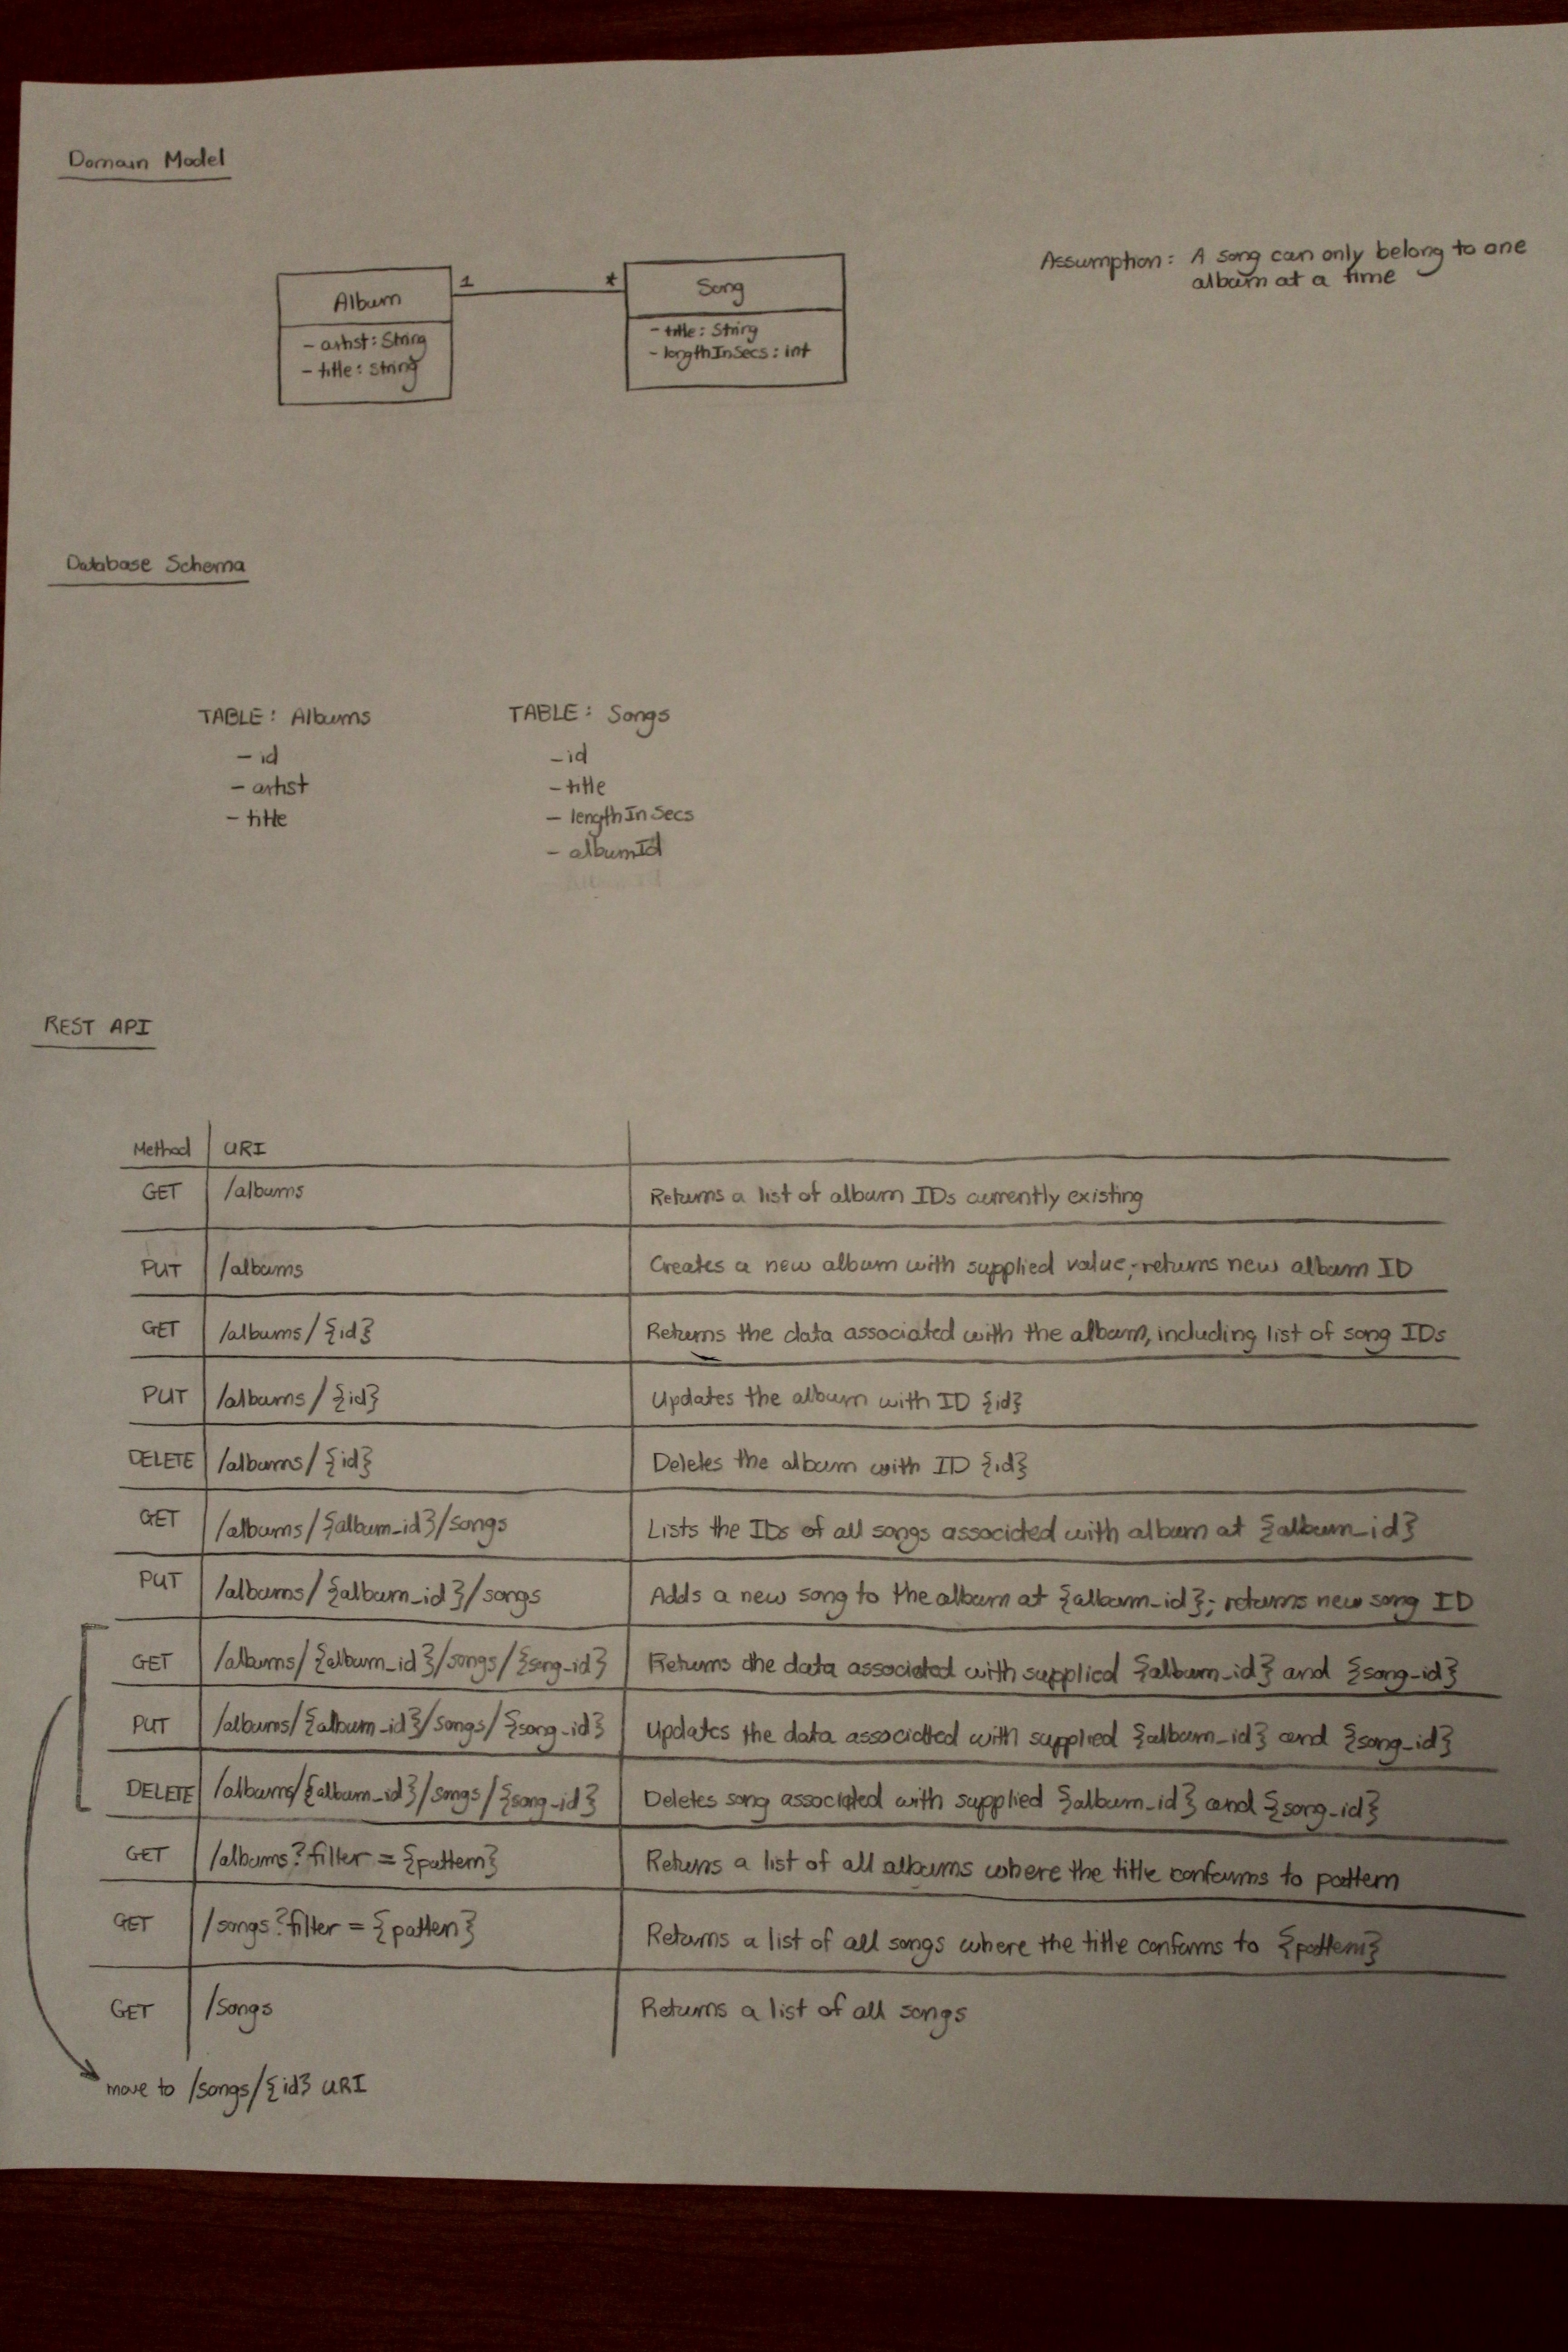 Domain Model
Assumption: A song can only belong to one
album at a time
1 *
Album
- artist: String
- title: String
Song
- title: String
- lengthInSecs: int
Database Schema
TABLE: Albums
- id
- artist
- title
TABLE: Songs
- id
- title
- lengthInSecs
- albumId
REST API
Method URI
GET /albums Returns a list of album IDs currently existing
PUT /albums Creates a new album with supplied value; returns new album ID
GET /albums/{id} Returns the data associated with the album, including list of song IDs
PUT /albums/{id} Updates the album with ID {id}
DELETE /albums/{id} Deletes the album with ID {id}
GET /albums/{album_id}/songs Lists the IDs of all songs associated with album at {album_id}
PUT /albums/{album_id}/songs Adds a new song to the album at {album_id}; returns new song ID
GET /albums/{album_id}/songs/{song_id} Returns the data associated with supplied {album_id} and {song_id}
PUT /albums/{album_id}/songs/{song_id} Updates the data associated with supplied {album_id} and {song_id}
DELETE /albums/{album_id}/songs/{song_id} Deletes song associated with supplied {album_id} and {song_id}
GET /albums?filter={pattern} Returns a list of all albums where the title conforms to pattern
GET /songs?filter={pattern} Returns a list of all songs where the title conforms to {pattern}
GET /songs Returns a list of all songs
move to /songs/{id} URI